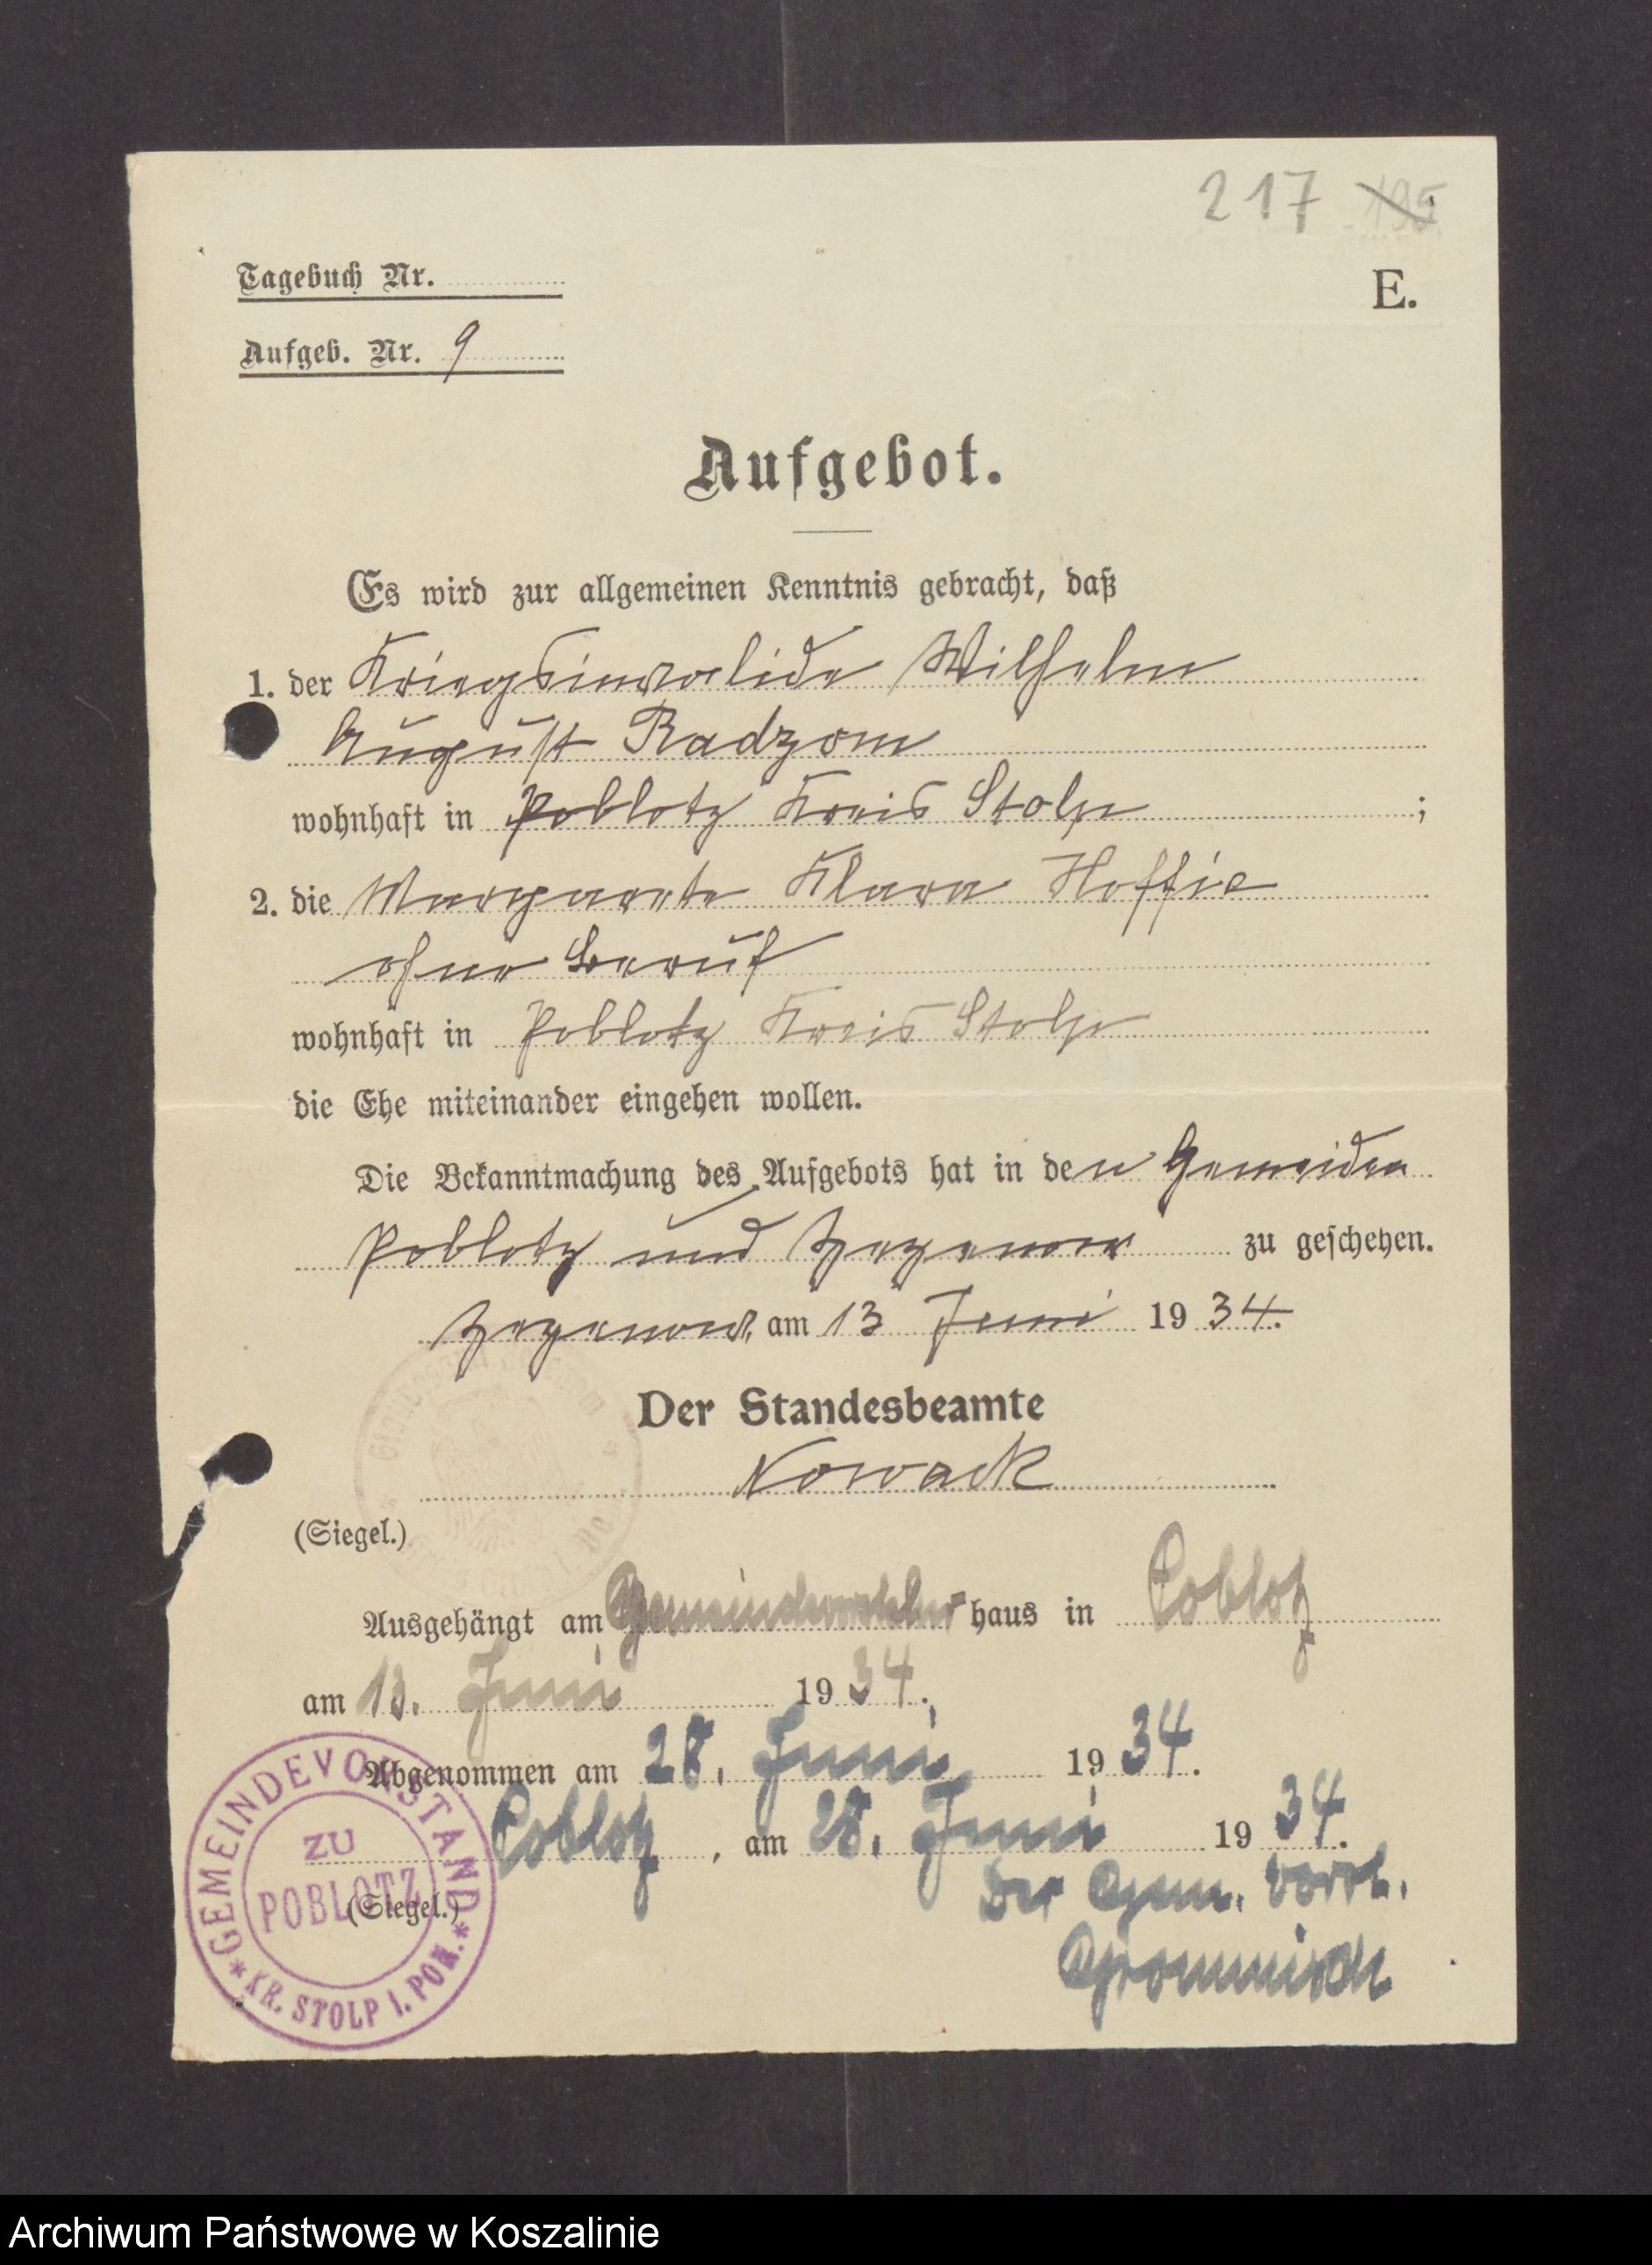 217 195
Tagebuch Nr.
E.
Aufgeb. Nr. 9
Aufgebot.
Es wird zur allgemeinen Kenntnis gebracht, daß
1. der Kriegsinvalide Wilhelm
August Radzom
wohnhaft in Poblotz Kreis Stolp ;
2. die Margarete Klara Hoffie
ohne Beruf
wohnhaft in Poblotz Kreis Stolp
die Ehe miteinander eingehen wollen.
Die Bekanntmachung des Aufgebots hat in den Gemeiden
Poblotz und Zezenow zu geschehen.
Zezenow, am 13 Juni 1934.
Der Standesbeamte
Nowack
(Siegel.)
Ausgehängt am haus in Poblotz
am 13. Juni 1934.
Abgenommen am 28. Juni 1934.
Poblotz, am 28. Juni 1934.
Der Gem. Vorst.
(Siegel.)
GEMEINDEVORSTAND
ZU
POBLOTZ
* KR. STOLP I. POM. *
Archiwum Państwowe w Koszalinie